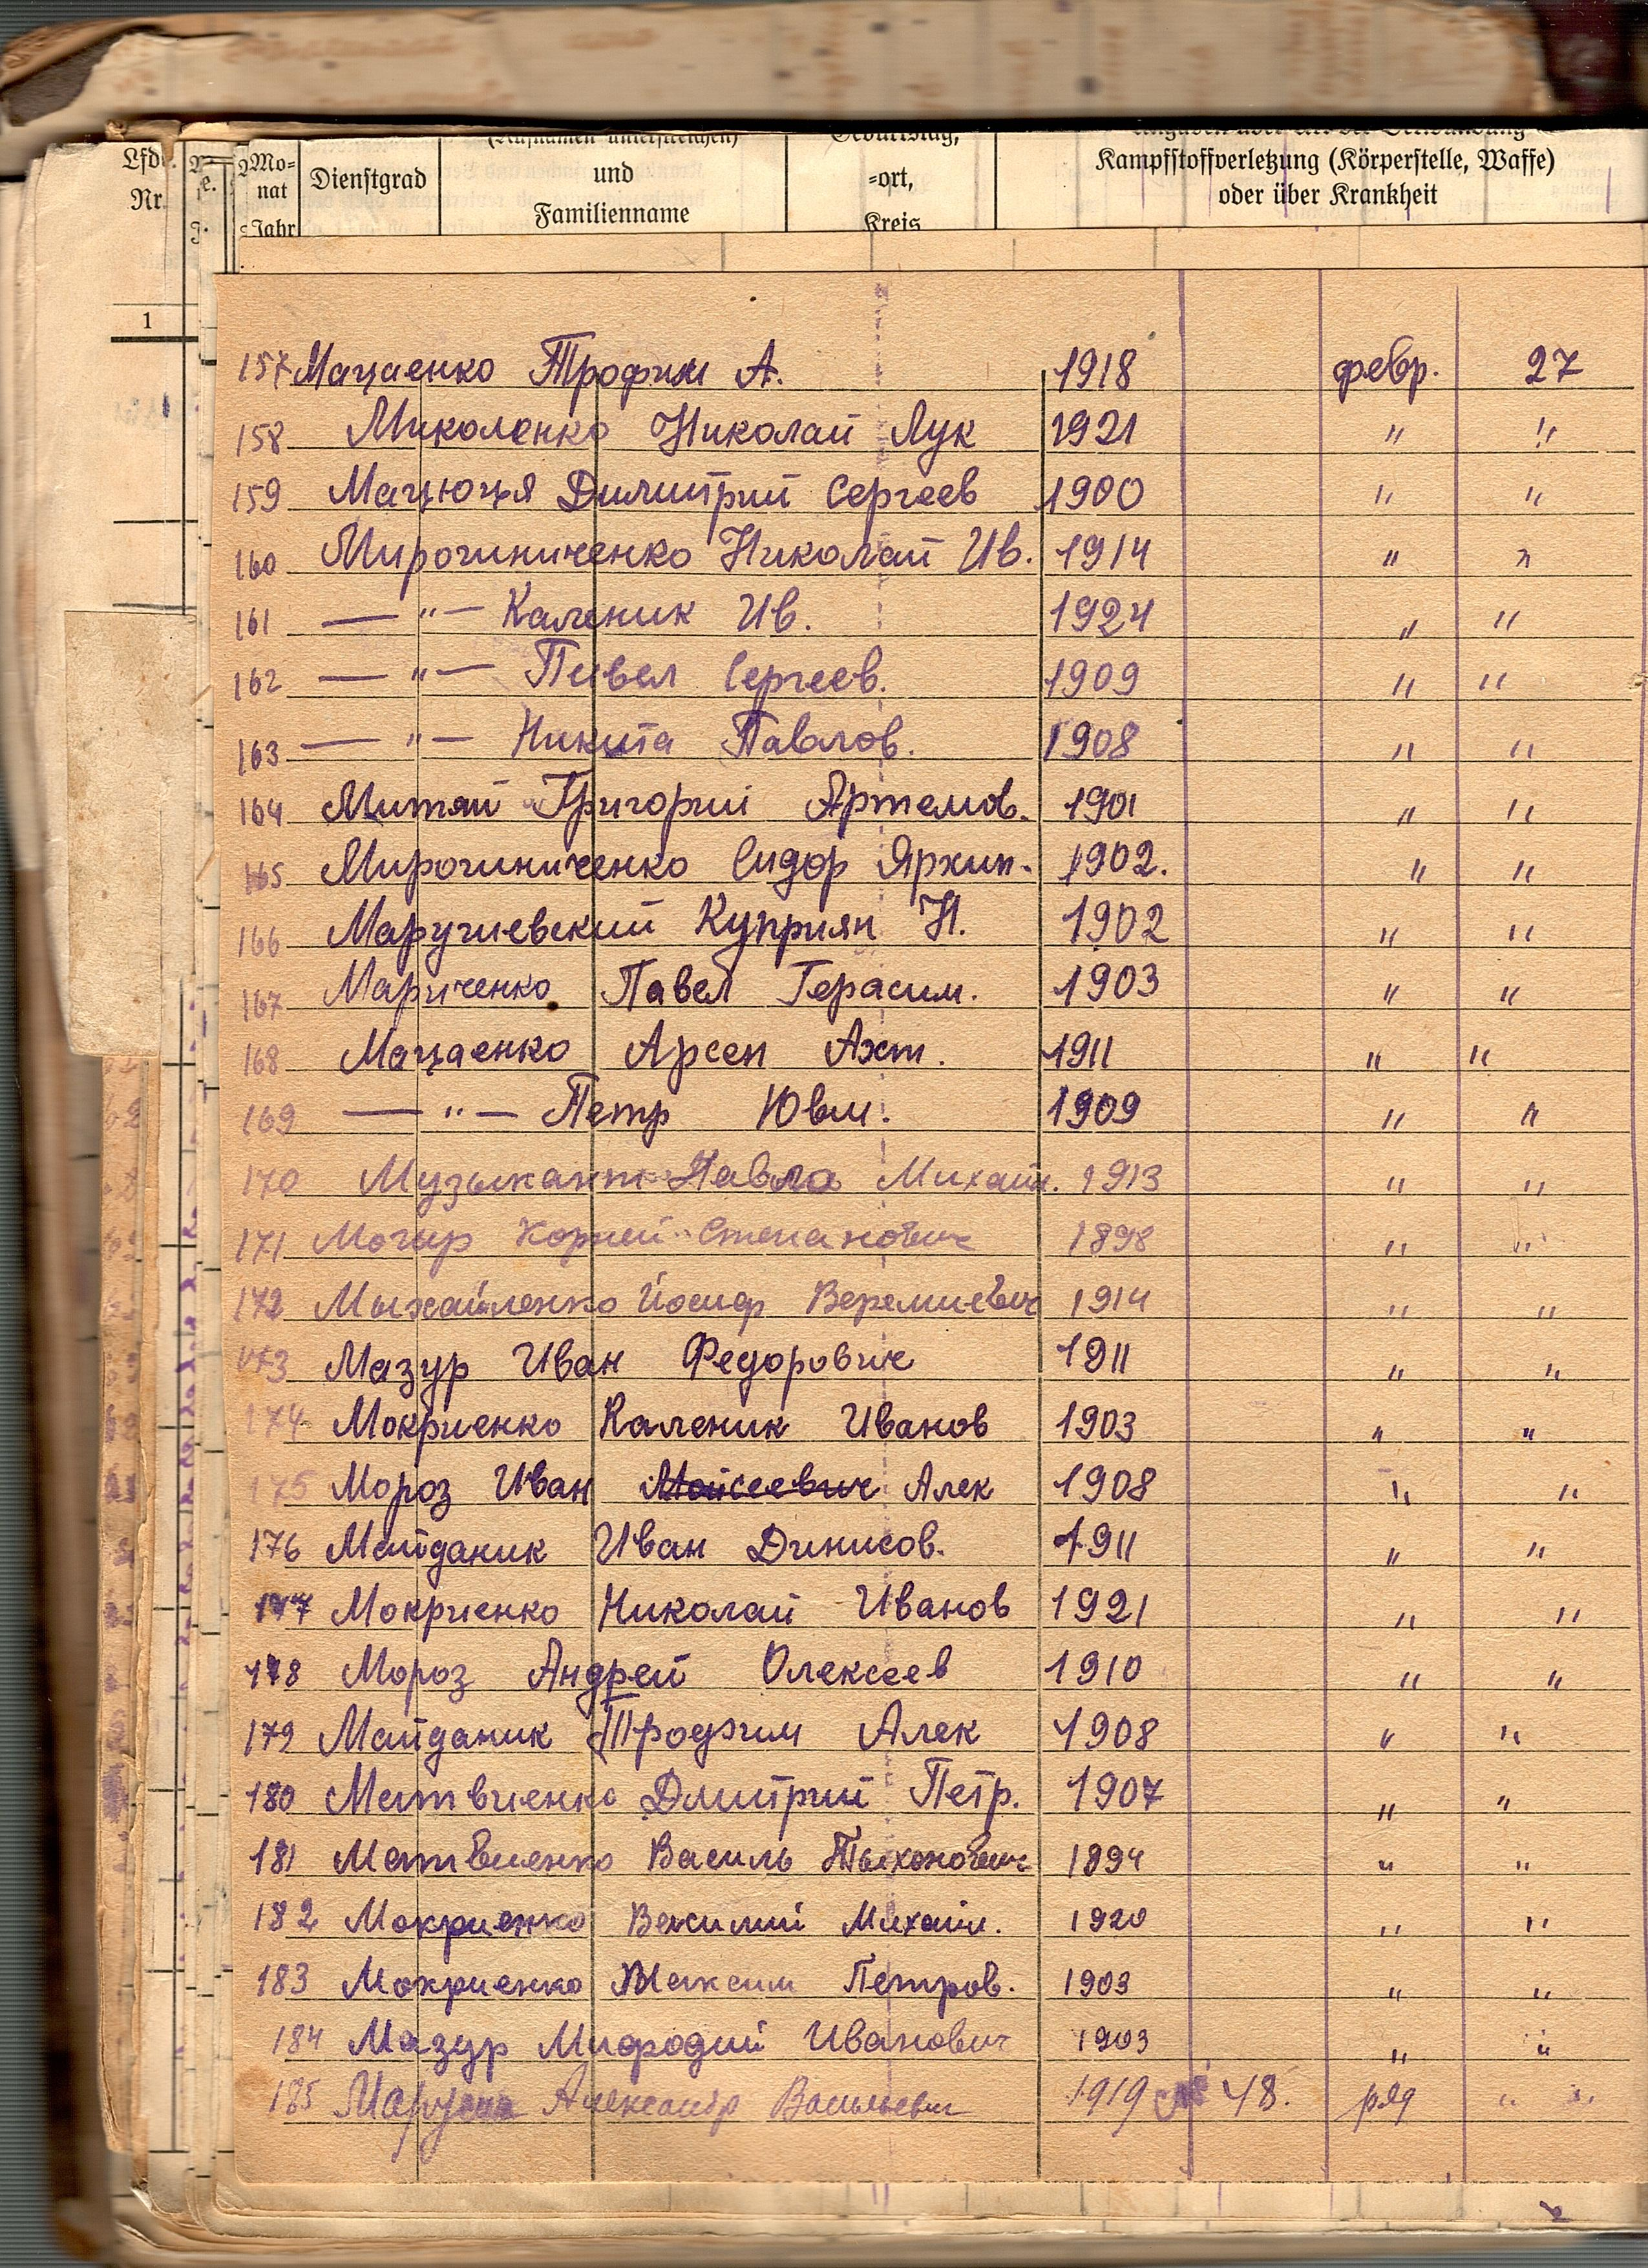 Lfd. Nr. Mo= nat Jahr Dienstgrad (Rufnamen unterstreichen) und Familienname Geburtstag, =ort, Kreis Kampfstoffverletzung (Körperstelle, Waffe) oder über Krankheit
1
157 Мацаенко Трофим А. 1918 февр. 27
158 Миколенко Николай Лук 1921 " "
159 Мацюця Димитрий Сергеев 1900 " "
160 Мирогиниченко Николай Ив. 1914 " "
161 — " — Каленик Ив. 1924 " "
162 — " — Павел Сергеев. 1909 " "
163 — " — Никита Павлов. 1908 " "
164 Митяй Григорий Артемов. 1901 " "
165 Мирогиниченко Сидор Архип. 1902. " "
166 Маругиевский Куприян Н. 1902 " "
167 Мариченко Павел Герасим. 1903 " "
168 Мацаенко Арсен 1911 " "
169 — " — Петр Ювм. 1909 " "
170 Музыкант Павло Михайл. 1913 " "
171 Могыр Корней Степанович 1898 " "
172 Мыхайленко Йосиф Веремиевич 1914 " "
173 Мазур Иван Федорович 1911 " "
174 Мокриенко Каленик Иванов 1903 " "
175 Мороз Иван Мойсеевич Алек 1908 " "
176 Майданик Иван Динисов. 1911 " "
177 Мокриенко Николай Иванов 1921 " "
178 Мороз Андрей Олексеев 1910 " "
179 Майданик Трофим Алек 1908 " "
180 Матвиенко Дмитрий Петр. 1907 " "
181 Матвиенко Василь Тыхонович 1894 " "
182 Мокриенко Василий Михайл. 1920 " "
183 Мокриенко Максим Петров. 1903 " "
184 Мазур Мифодий Иванович 1903 " "
185 Александр Васильевич 1919 48. ряд " "